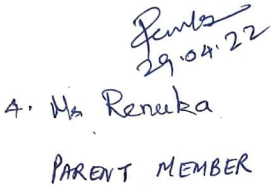 29.04.22
4. Ms Renuka
PARENT MEMBER